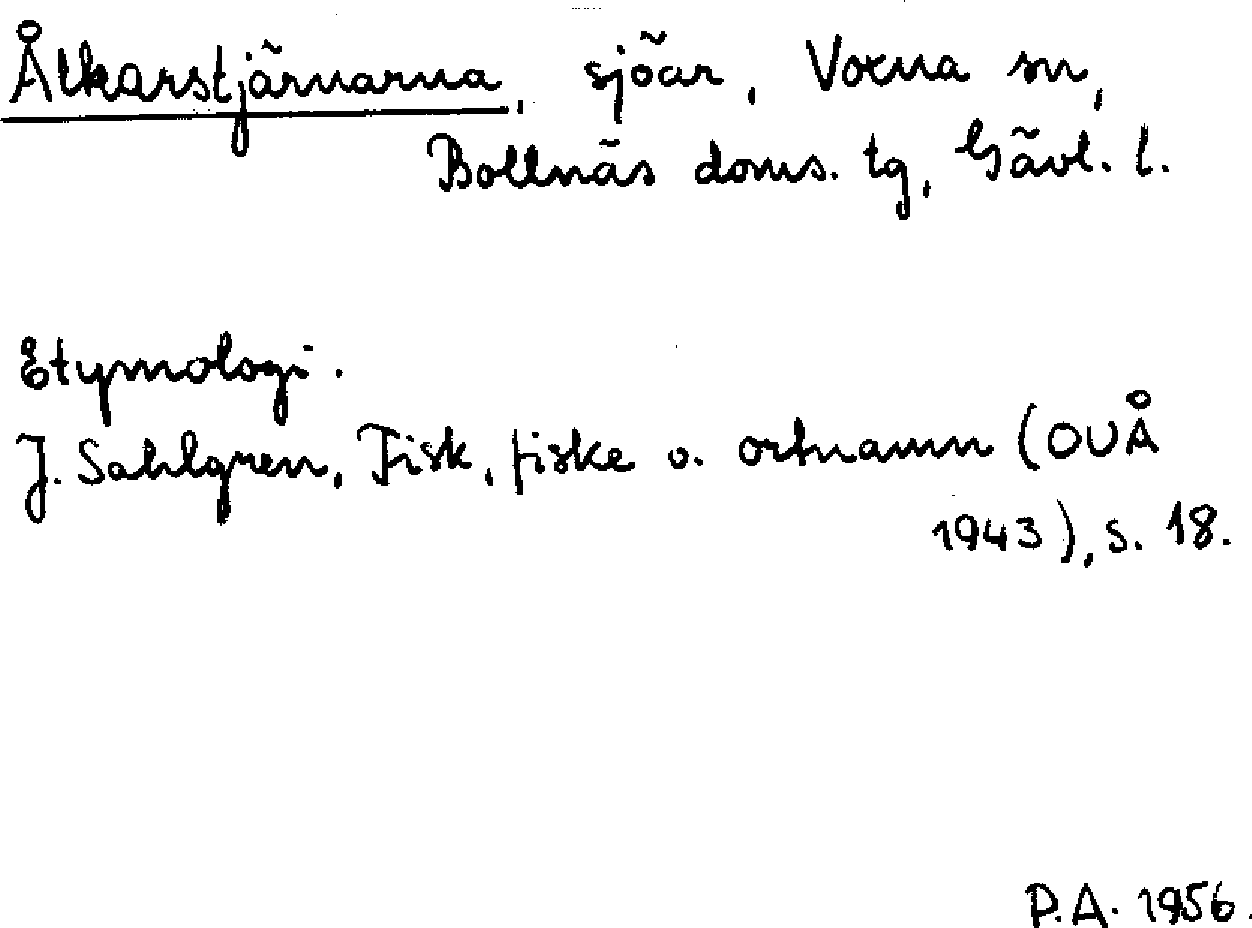 Ålkarstjärnarna, sjöar, Voxna sn,
Bollnäs doms. tg, Gävl. l.
Etymologi.
J. Sahlgren, Fisk, fiske o. ortnamn (OUÅ
1943), s. 18.
P.A. 1956.